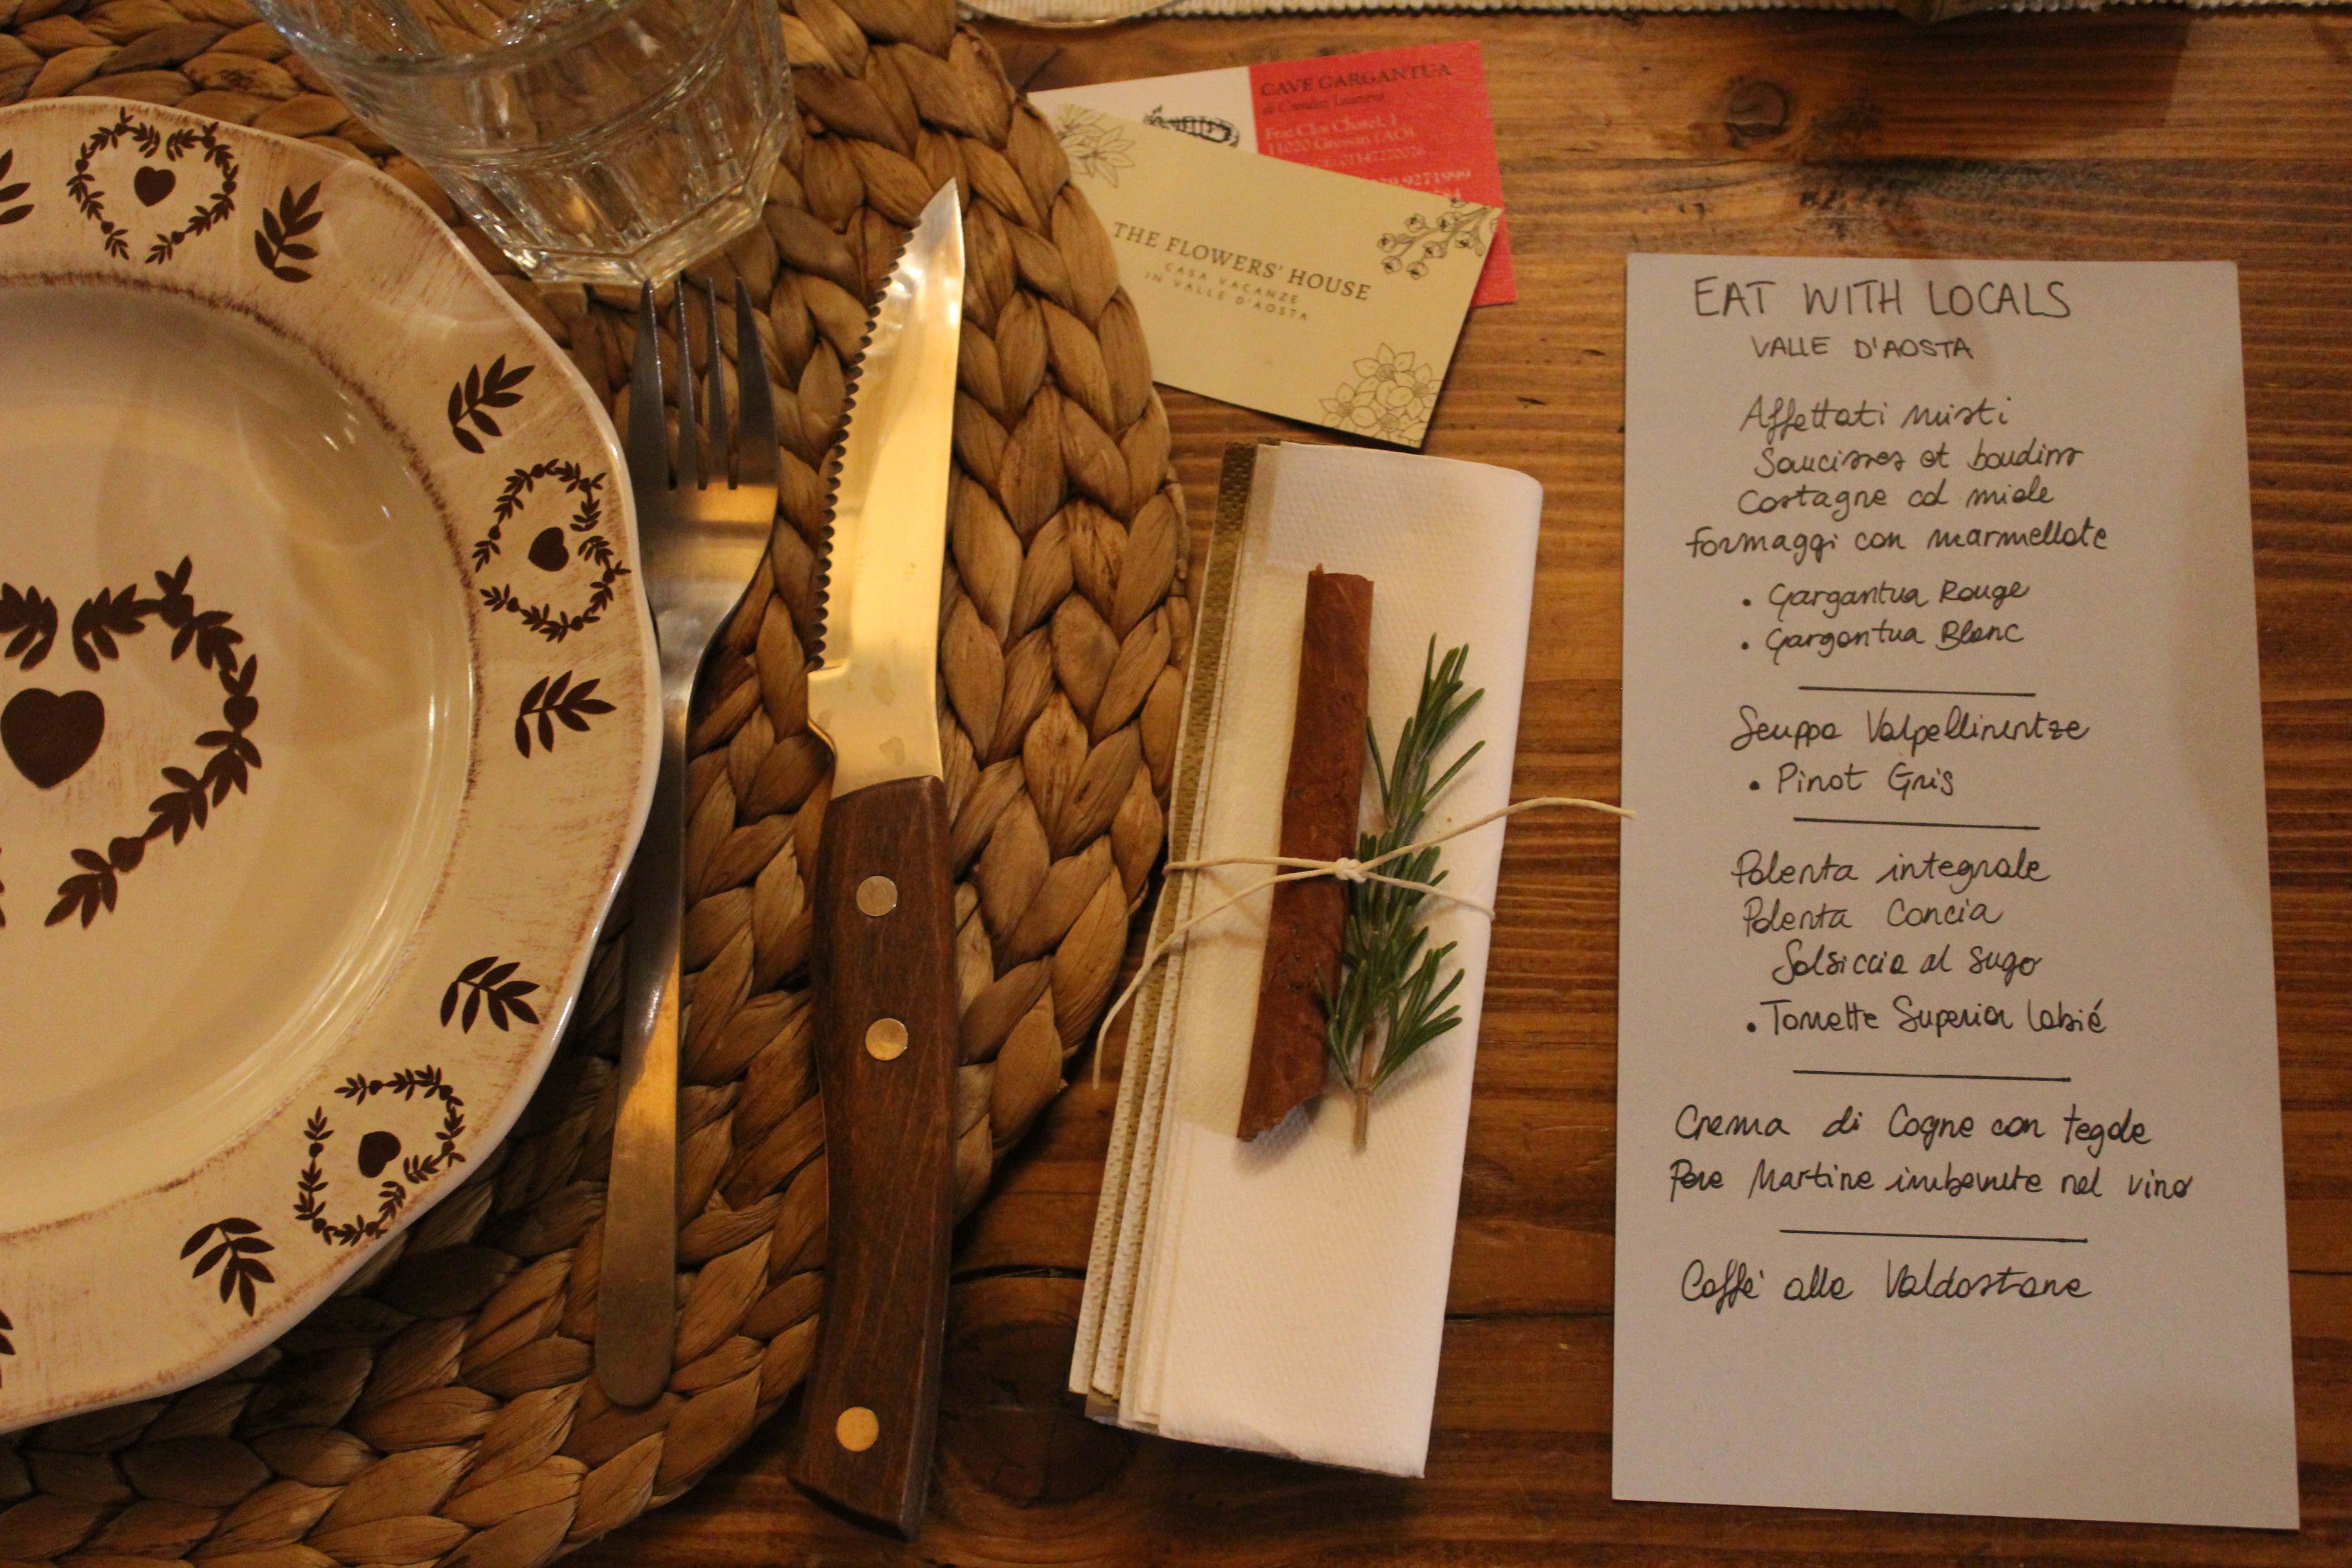 CAVE GARGANTUA
11020 Gressan (AO)
THE FLOWERS' HOUSE
CASA VACANZE
IN VALLE D'AOSTA
EAT WITH LOCALS
VALLE D'AOSTA
Affettati misti
Saucisses et boudins
Castagne col miele
Formaggi con marmellate
• Gargantua Rouge
• Gargantua Blanc
Seuppa Valpellinentze
• Pinot Gris
Polenta integrale
Polenta Concia
Salsiccia al sugo
• Torrette Superior Labié
Crema di Cogne con tegole
Pere Martine imbevute nel vino
Caffè alla Valdostana